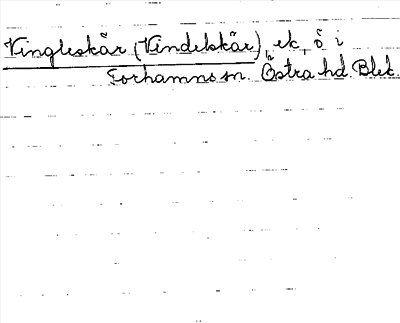 Vingleskär (Vindelskär), ek, ö i
Torhamns sn. Östra hd. Blek.